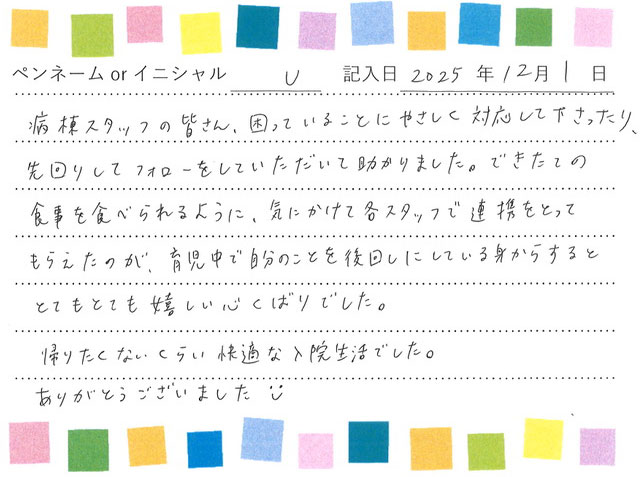 ペンネーム or イニシャル U 記入日 2025 年 12 月 1 日
病棟スタッフの皆さん、困っていることにやさしく対応して下さったり、
先回りしてフォローをしていただいて助かりました。できたての
食事を食べられるように、気にかけて各スタッフで連携をとって
もらえたのが、育児中で自分のことを後回しにしている身からすると
とてもとても嬉しい心くばりでした。
帰りたくないくらい快適な入院生活でした。
ありがとうございました